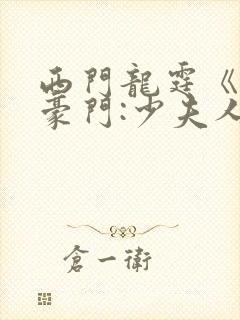 西門龍霆《
豪門:少夫人
倉一衛